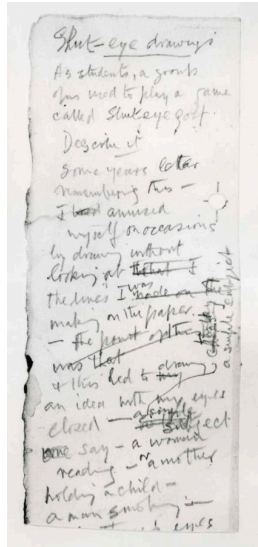 Shut-eye drawings
As students, a group
of us used to play a game
called Shut eye golf.
Describe it
Some years later
remembering this –
I had amused
myself on occasions
by drawing without
looking at that I
the lines I was made on
making on the paper.
– the point of the
was that
& this led to my drawing
an idea with my eyes
closed – a simple
subject
one say – a woman
reading – or a mother
holding a child –
a man smoking –
eyes
a simple subject